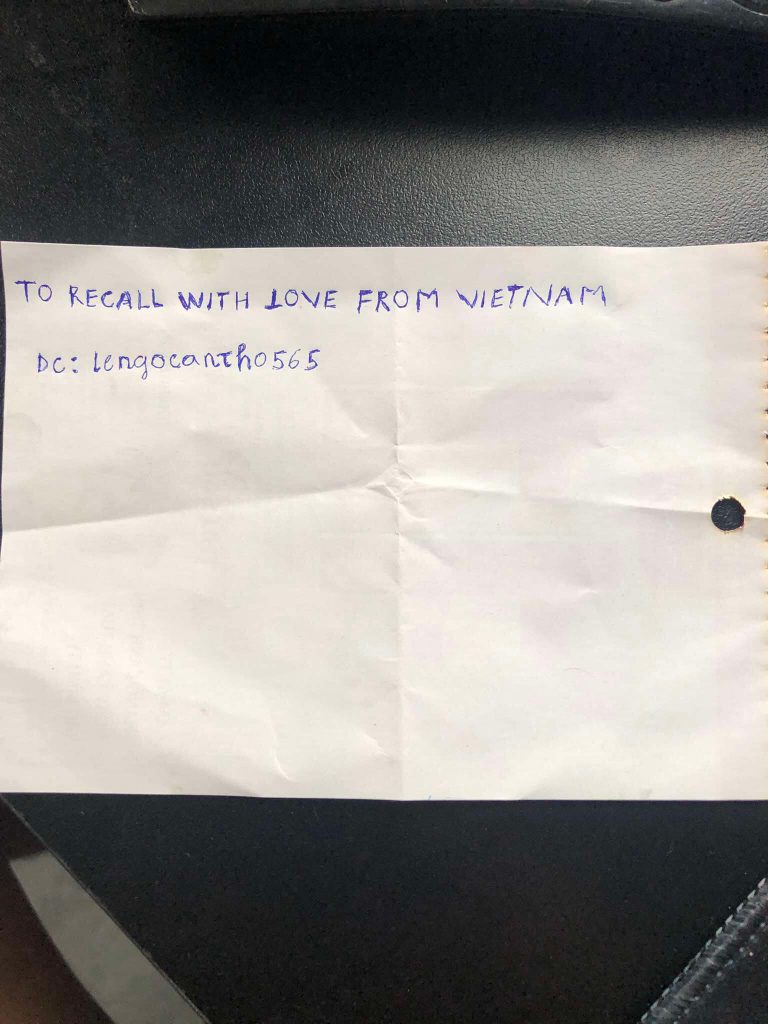 TO RECALL WITH LOVE FROM VIETNAM
DC: lengocantho565